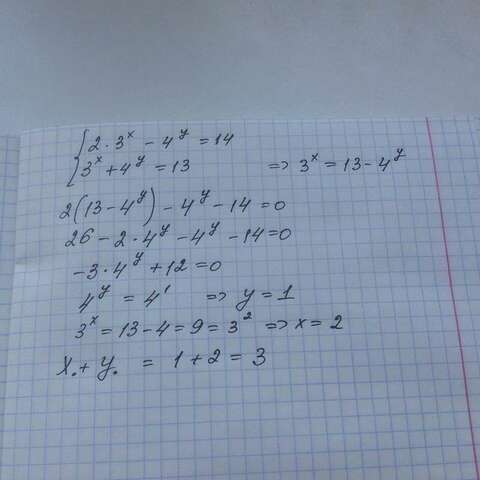 { 2·3^x − 4^y = 14
3^x + 4^y = 13 => 3^x = 13 − 4^y
2(13 − 4^y) − 4^y − 14 = 0
26 − 2·4^y − 4^y − 14 = 0
−3·4^y + 12 = 0
4^y = 4^1 => y = 1
3^x = 13 − 4 = 9 = 3^2 => x = 2
x₀ + y₀ = 1 + 2 = 3